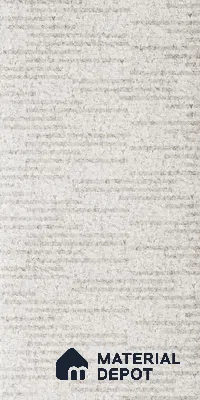 MATERIAL
DEPOT